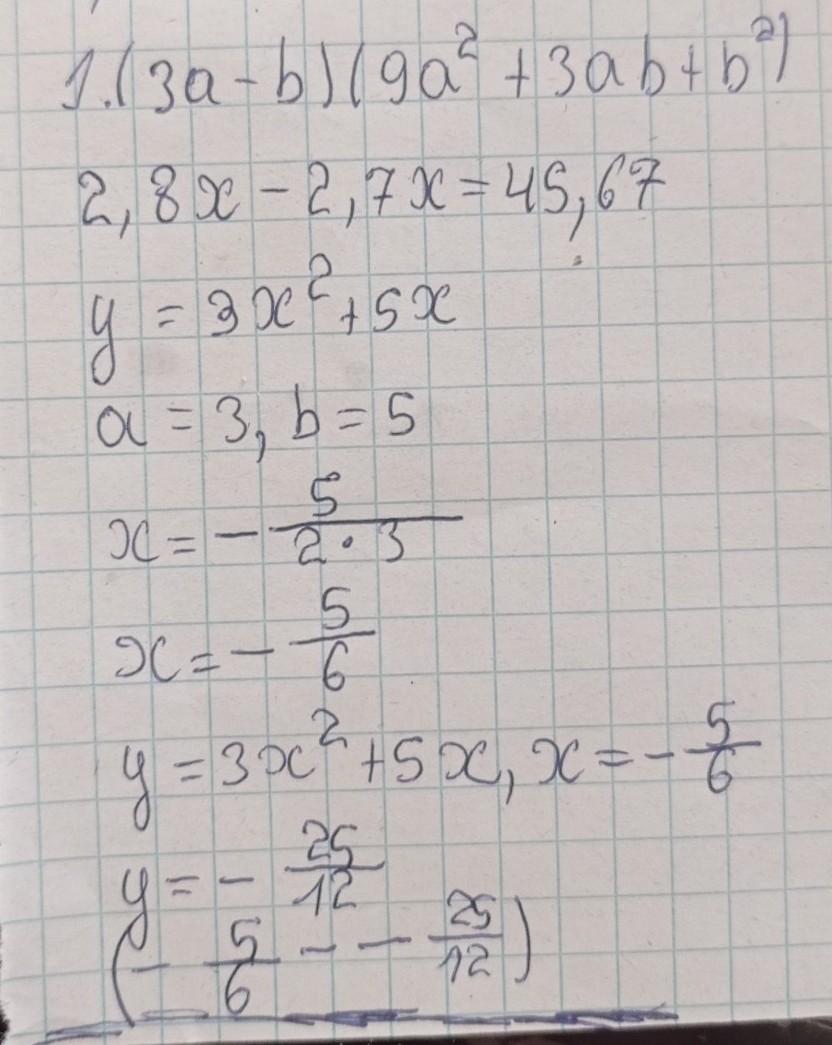 1.(3a-b)(9a² + 3ab + b²)
2,8x - 2,7x = 45,67
y = 3x² + 5x
a = 3, b = 5
x = - 5/(2·3)
x = - 5/6
y = 3x² + 5x, x = - 5/6
y = - 25/12
(- 5/6 - - 25/12)